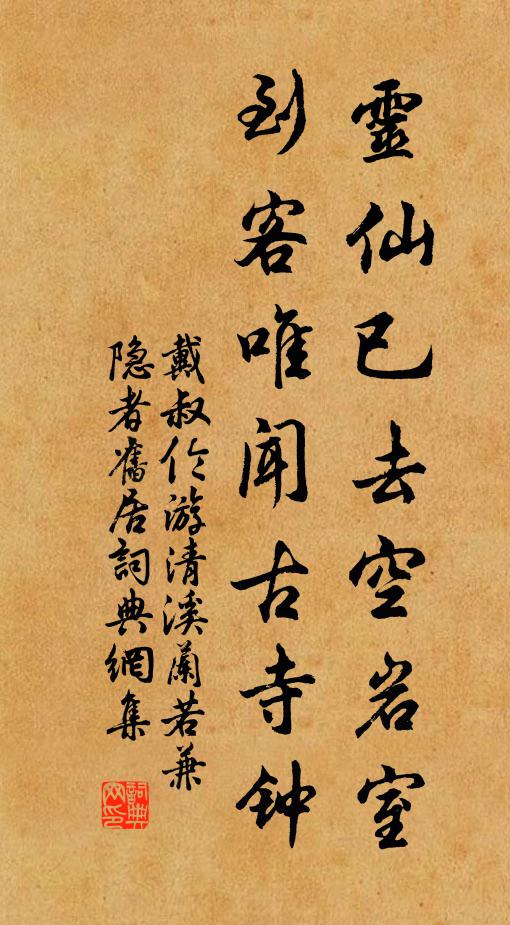 靈仙已去空岩室
到客唯聞古寺钟
戴叔伦游清溪蘭若兼
隐者舊居詞典網集
詞典网印